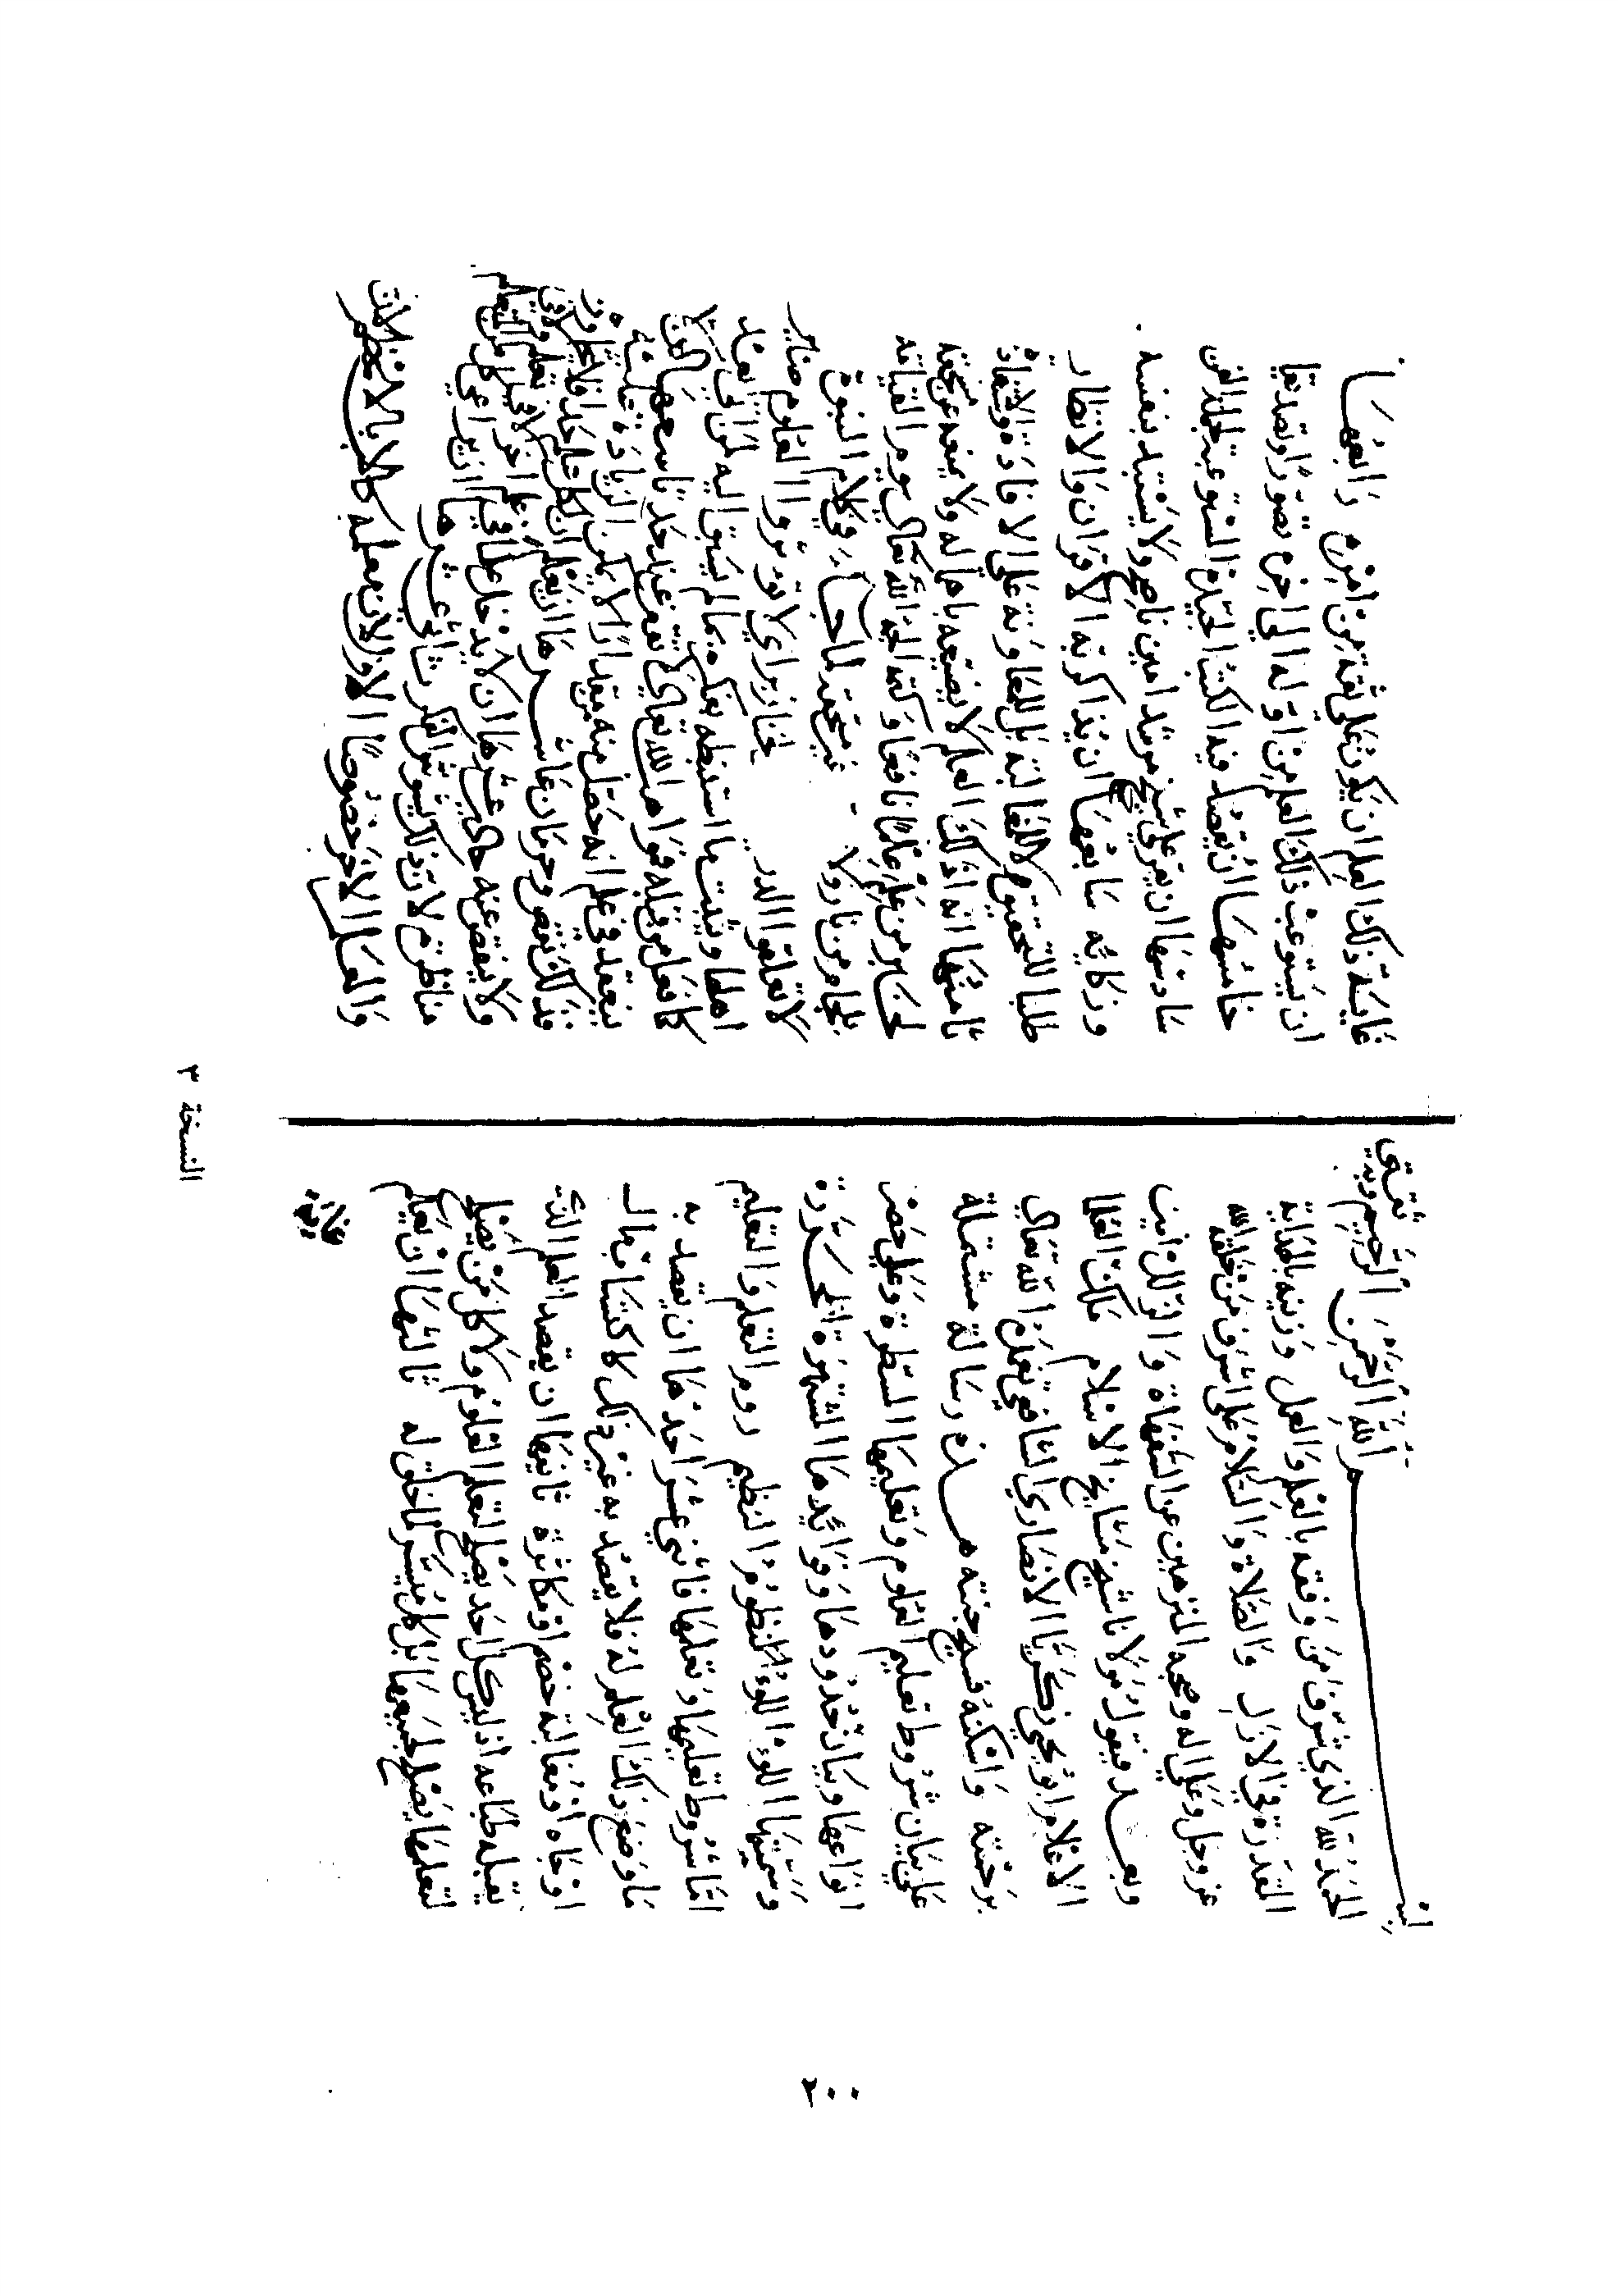 بسم الله الرحمن الرحيم وبه ثقتي
الحمد لله الذي شرف من وفقه بالعلم والعمل وزينه بالهداية
القدرة في الازل والصلاة والسلام على اشرف من خلقه الله
عز وجل وعلى اله وصحبه المنزهين عن والزلل امين
وبعد فيقول مولانا شيخ مشايخ الاسلام ملك العلما
الاعلام ابو يحيي زكريا الانصاري الشافعي تغمده الله تعالي
برحمته واسكنه فسيح جنته هذه رسالة مشتملة
علي بيان شروط تعليم العلوم وتعليمها المسطرة وعلي حصر
انواعها وبيان حدودها وفوايدها الشهيرة المحررة
وسميتها اللؤلؤ النظيم روم التعلم والتعليم
اما شروط تعليمها وتعلمها فاثني عشر احدها ان يقصد به
ما وضع ذلك العلم له فلا يقصد به غير ذلك كاكتساب مال
او جاه او مغالبة خصم او مكاثرة ثانيها ان يقصد العلم الذي
يقبله طباعه اذ ليس كل احد يصلح لتعلم العلوم ولا كل من يصلح
لتعلمها يصلح لجميعها بل كل ميسر لما خلق له ثالثها ان يعلم
غايته
غاية ذلك العلم ان يكون علي ثقة من امره رابعها
ان يستوعب ذلك العلم من اوله الي اخره تصورا وتصديقا
خامسها ان يقصد فيه الكتب الجيدة المستوعبة لجملة الفن
سادسها ان يقرا علي شيخ مرشد امين ناصح ولا يستبد بنفسه
وذكايه سابعها ان يذاكر به الاقران والانظار
طلبا للتحقيق لا للمغالبة بل للمعاونة علي الافادة والاستفادة
ثامنها انه اذا علم ذلك العلم لا يضيعه باهماله ولا يمنعه عن مستحقه
لخبر من علم علما نافعا وكتمه الجمه الله تعالي يوم القيامة
بلجام من نار ولا غير مستحقه لما جاء في كلام النبوة
لا تعلقوا الدر الخنازير اي لا تؤتوا العلوم غير
اهلها ويثبت ما استنبطه بفكره مما لم يسبق اليه لمن اتي بعده
كما فعل من قبله فمواهب الله تعالي لا تقف عند حد تاسعها ان لا
يعتقد في علم انه حصل منه مقدارا لا يمكن الزيادة عليه
فذلك نقص وحرمان عاشرها ان يعلم ان لكل علم حدا فلا يتجاوزه
ولا ينقص عنه حادي عشرها ان لا يدخل علما في علم اخر لا في تعلم ولا في
مناظرة لان ذلك يشوش الفكر ثاني عشرها ان يراعي كل من المتعلم
والمعلم الاخر خصوصا الاول لان معلمه كالاب بل اعظم
النسخة ٣
٢٠٠